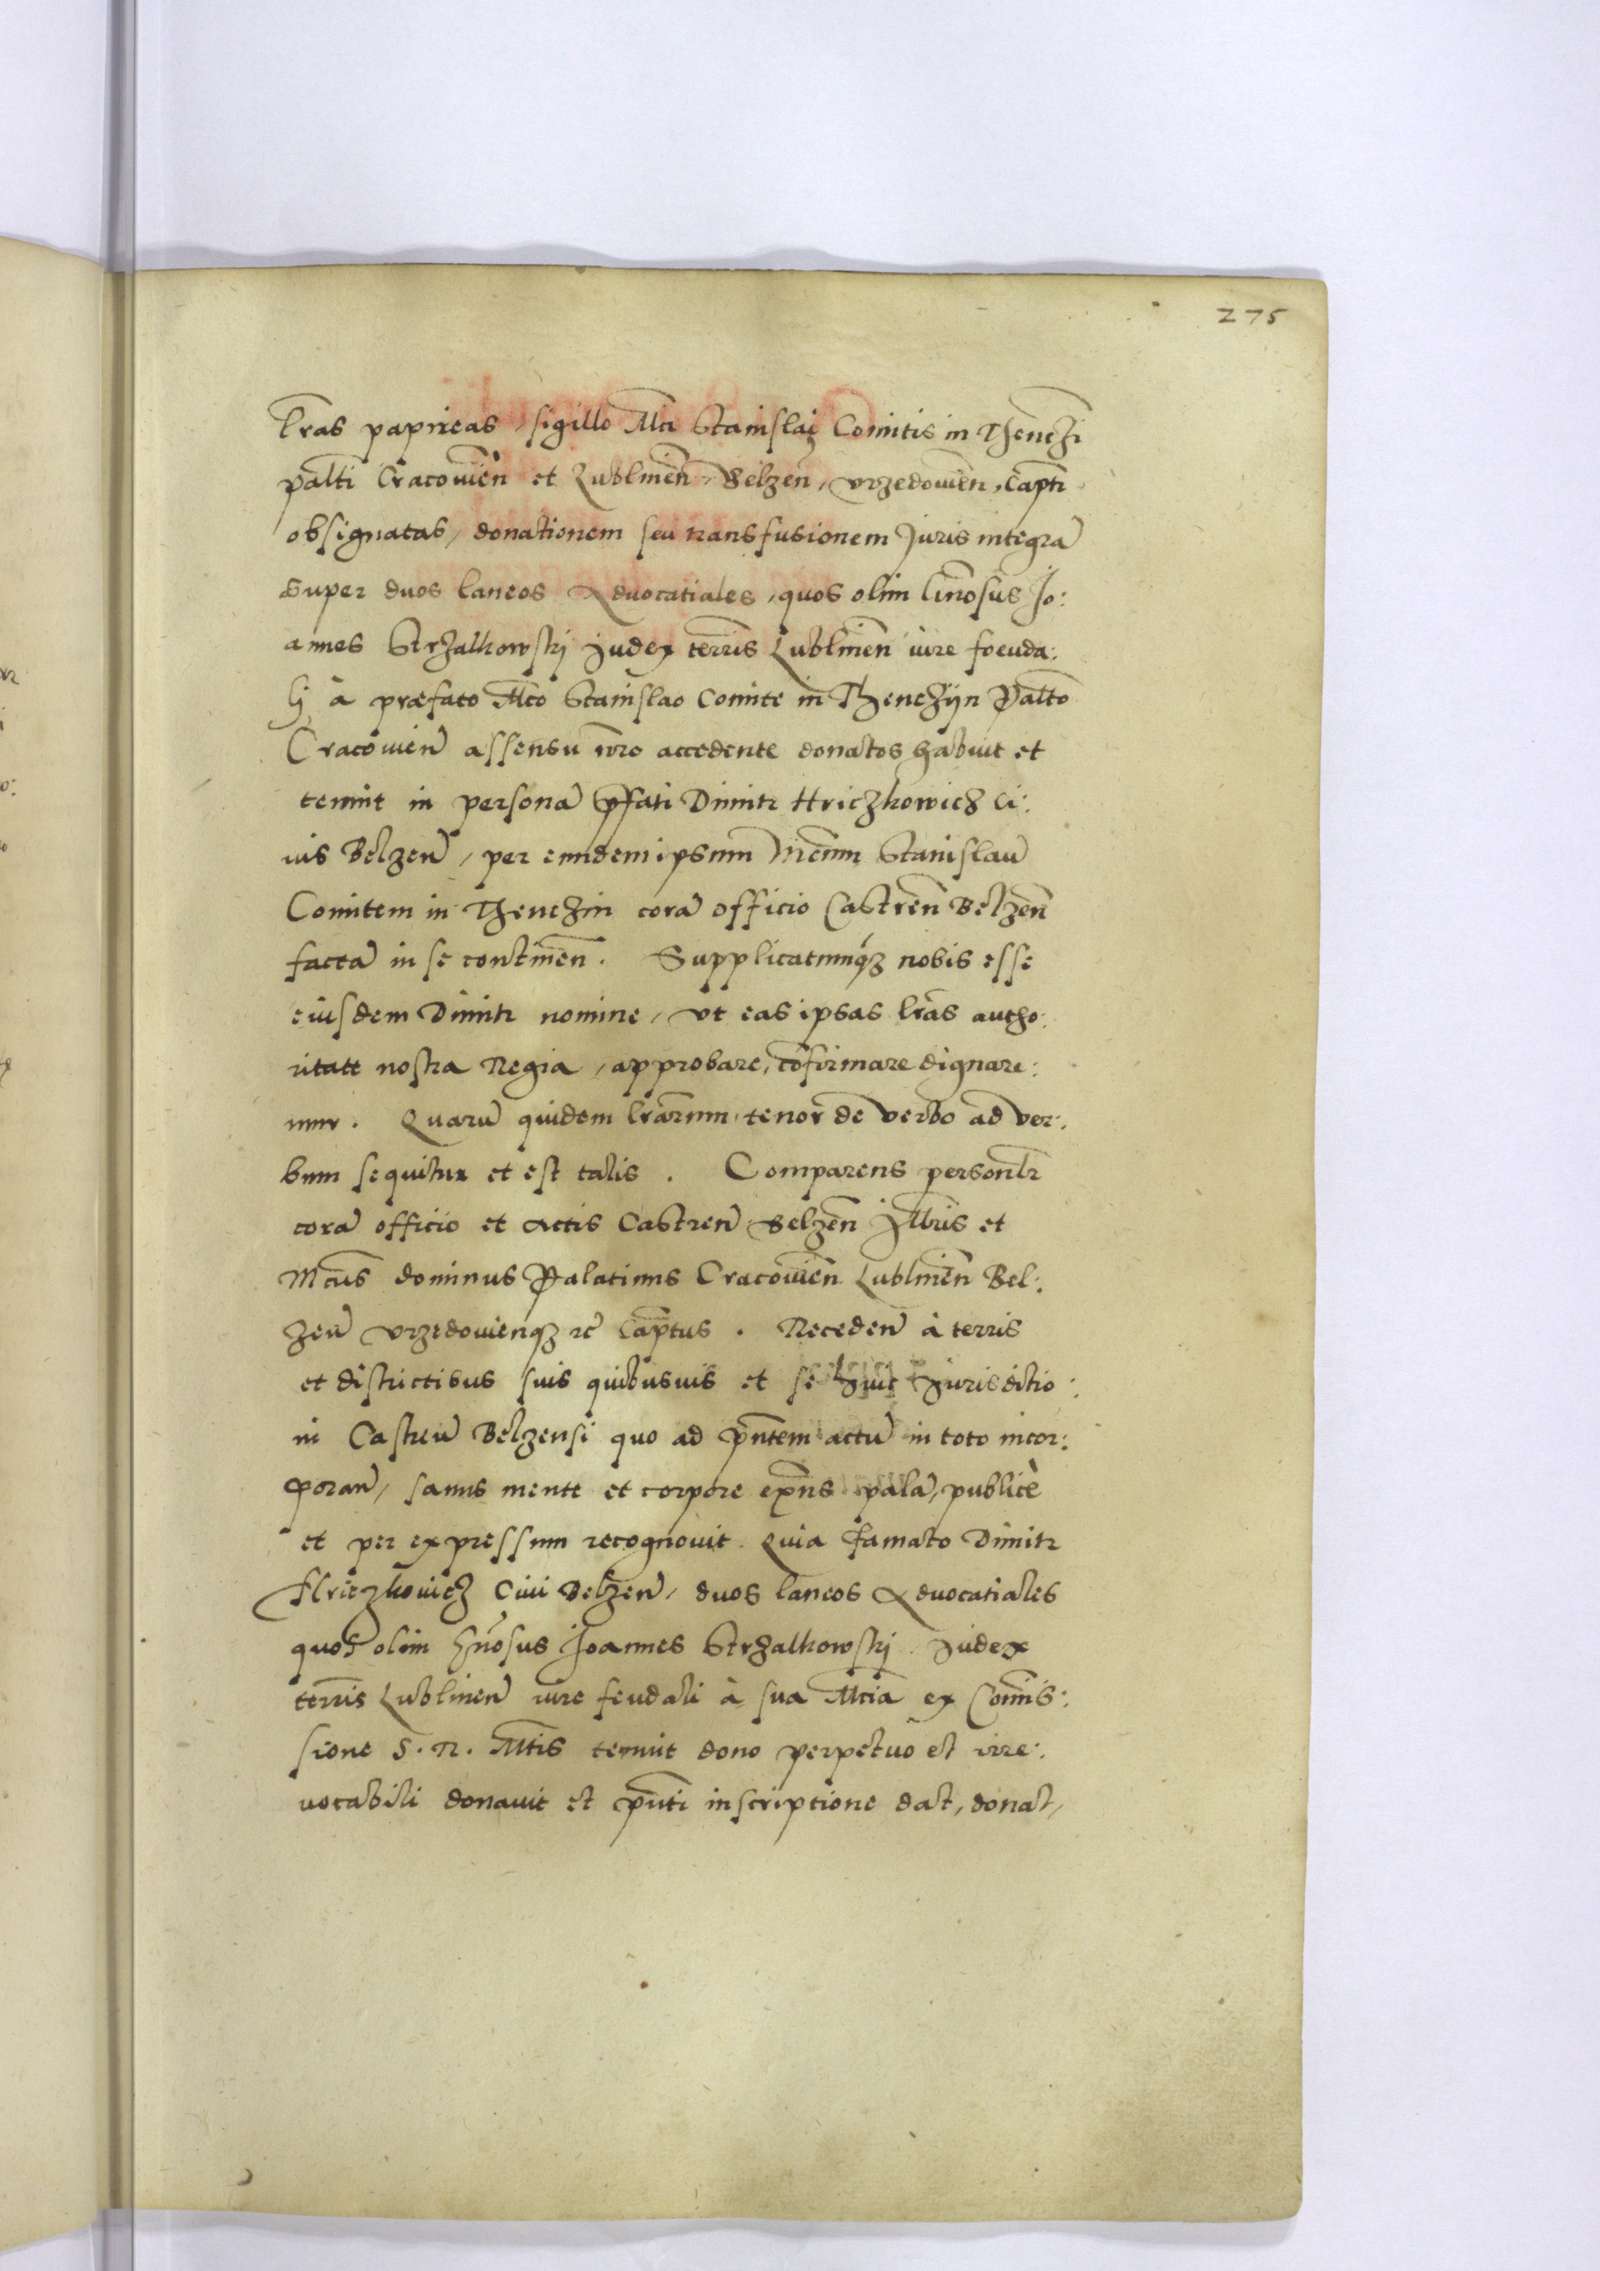 275
lras papireas, sigillo Mci Stanislai Comitis in Thenczi
palti Cracovien et Lublinen, Belzen, vrzedovien, Capti
obsignatas, donationem seu transfusionem Juris integra
super duos laneos Advocatiales, quos olim Gnosus Jo:
annes Strzalkowskj Judex terris Lublinen iure foeuda:
li à præfato Mco Stanislao Comite in Thenczijn Palto
Cracovien assensu nro accedente donatos habuit et
tenuit in persona pfati Dimitr Hriczkowicz Ci:
uis Belzen, per eundem ipsum Mcum Stanislau
Comitem in Thenczin cora officio Castren Belzen
facta in se continen. Supplicatumqz nobis esse
eiusdem Dimitr nomine, vt eas ipsas lras autho:
ritate nostra Regia, approbare, cofirmare dignare:
mur. Quaru quidem lrarum tenor de verbo ad ver:
bum sequitur et est talis. Comparens personlr
cora officio et Actis Castren Belzen Jllris et
Mcus dominus Palatinus Cracovien Lublinen Bel:
zen vrzedovienqz rc Captus. Receden à terris
et districtibus suis quibusuis et se huic Jurisditio:
ni Castren Belzensi quo ad pntem actu in toto incor:
poran, sanus mente et corpore exns pala, publicè
et per expressum recognovit. Quia famato Dimitr
Hriczkovicz Ciui Belzen, duos laneos Advocatiales
quos olim Gnosus Joannes Strzalkowskj Judex
terris Lublinen iure feudali à sua Mcia ex Comis:
sione S. R. Mtis tenuit dono perpetuo et irre:
vocabili donavit et pnti inscriptione dat, donat,